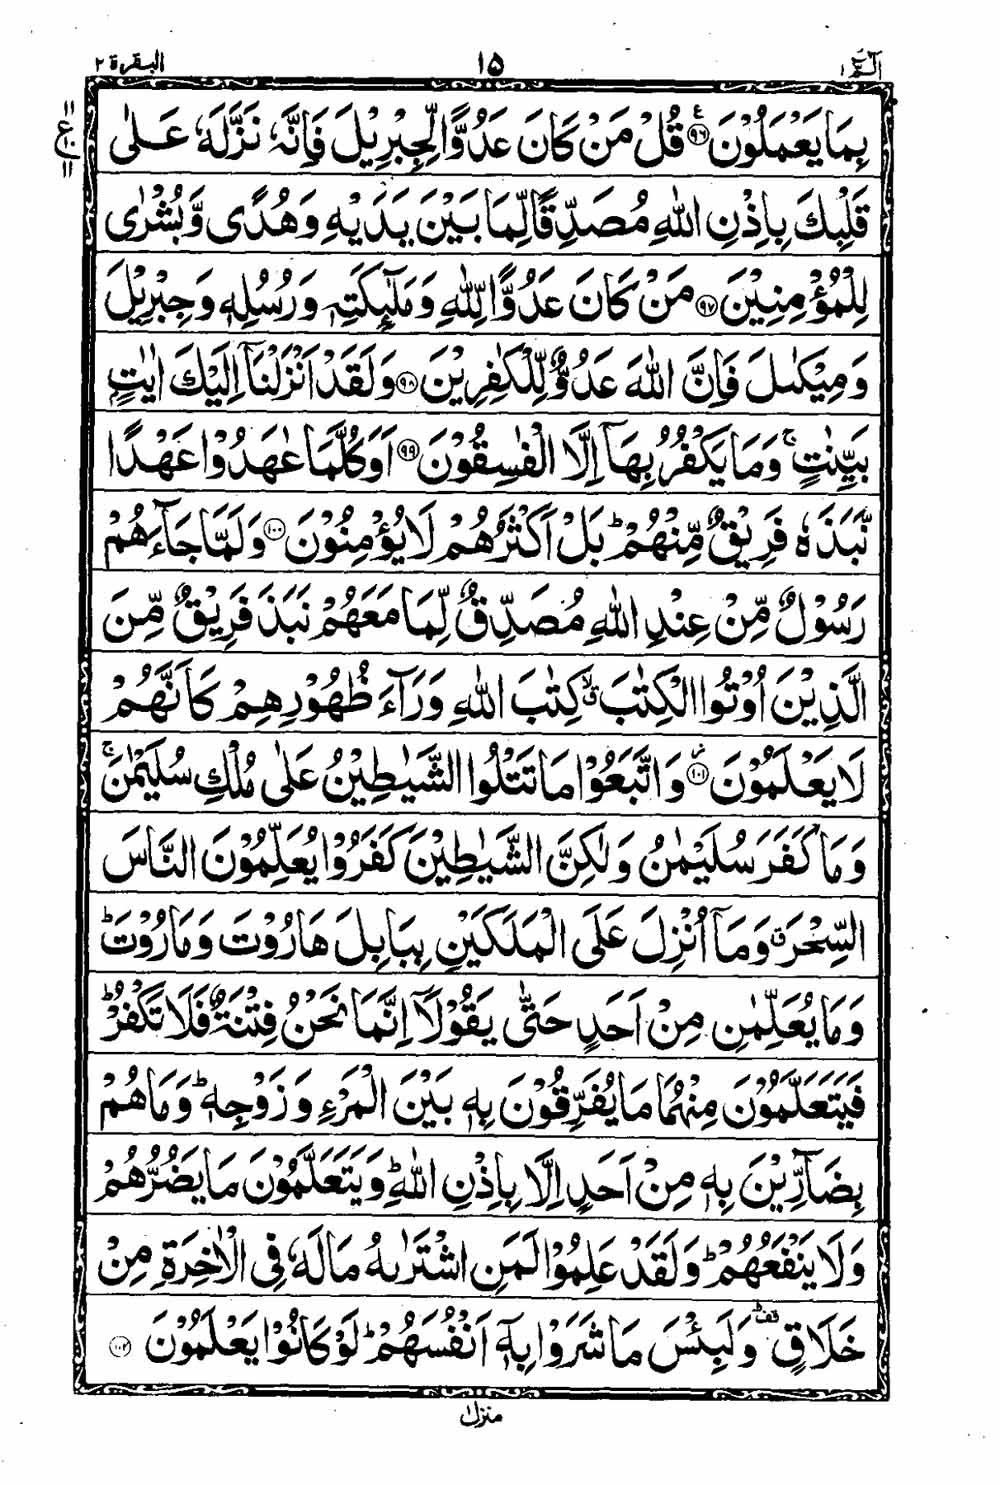 الٓمّٓ ١ ١٥ البقرة ٢
بِمَا يَعْمَلُوْنَ ﴿٩٦﴾ قُلْ مَنْ كَانَ عَدُوًّا لِّجِبْرِيْلَ فَاِنَّهٗ نَزَّلَهٗ عَلٰى
قَلْبِكَ بِاِذْنِ اللّٰهِ مُصَدِّقًا لِّمَا بَيْنَ يَدَيْهِ وَهُدًى وَّبُشْرٰى
لِلْمُؤْمِنِيْنَ ﴿٩٧﴾ مَنْ كَانَ عَدُوًّا لِّلّٰهِ وَمَلٰٓئِكَتِهٖ وَرُسُلِهٖ وَجِبْرِيْلَ
وَمِيْكٰىلَ فَاِنَّ اللّٰهَ عَدُوٌّ لِّلْكٰفِرِيْنَ ﴿٩٨﴾ وَلَقَدْ اَنْزَلْنَآ اِلَيْكَ اٰيٰتٍۢ
بَيِّنٰتٍ ۚ وَمَا يَكْفُرُ بِهَآ اِلَّا الْفٰسِقُوْنَ ﴿٩٩﴾ اَوَكُلَّمَا عٰهَدُوْا عَهْدًا
نَّبَذَهٗ فَرِيْقٌ مِّنْهُمْ ؕ بَلْ اَكْثَرُهُمْ لَا يُؤْمِنُوْنَ ﴿١٠٠﴾ وَلَمَّا جَآءَهُمْ
رَسُوْلٌ مِّنْ عِنْدِ اللّٰهِ مُصَدِّقٌ لِّمَا مَعَهُمْ نَبَذَ فَرِيْقٌ مِّنَ
الَّذِيْنَ اُوْتُوا الْكِتٰبَ ۙۗ كِتٰبَ اللّٰهِ وَرَآءَ ظُهُوْرِهِمْ كَاَنَّهُمْ
لَا يَعْلَمُوْنَ ﴿١٠١﴾ وَاتَّبَعُوْا مَا تَتْلُوا الشَّيٰطِيْنُ عَلٰى مُلْكِ سُلَيْمٰنَ ۚ
وَمَا كَفَرَ سُلَيْمٰنُ وَلٰكِنَّ الشَّيٰطِيْنَ كَفَرُوْا يُعَلِّمُوْنَ النَّاسَ
السِّحْرَ ۗ وَمَآ اُنْزِلَ عَلَى الْمَلَكَيْنِ بِبَابِلَ هَارُوْتَ وَمَارُوْتَ ؕ
وَمَا يُعَلِّمٰنِ مِنْ اَحَدٍ حَتّٰى يَقُوْلَآ اِنَّمَا نَحْنُ فِتْنَةٌ فَلَا تَكْفُرْ ؕ
فَيَتَعَلَّمُوْنَ مِنْهُمَا مَا يُفَرِّقُوْنَ بِهٖ بَيْنَ الْمَرْءِ وَزَوْجِهٖ ؕ وَمَا هُمْ
بِضَآرِّيْنَ بِهٖ مِنْ اَحَدٍ اِلَّا بِاِذْنِ اللّٰهِ ؕ وَيَتَعَلَّمُوْنَ مَا يَضُرُّهُمْ
وَلَا يَنْفَعُهُمْ ؕ وَلَقَدْ عَلِمُوْا لَمَنِ اشْتَرٰىهُ مَا لَهٗ فِى الْاٰخِرَةِ مِنْ
خَلَاقٍ ؕ قف وَلَبِئْسَ مَا شَرَوْا بِهٖٓ اَنْفُسَهُمْ ؕ لَوْ كَانُوْا يَعْلَمُوْنَ ﴿١٠٢﴾
منزل ١